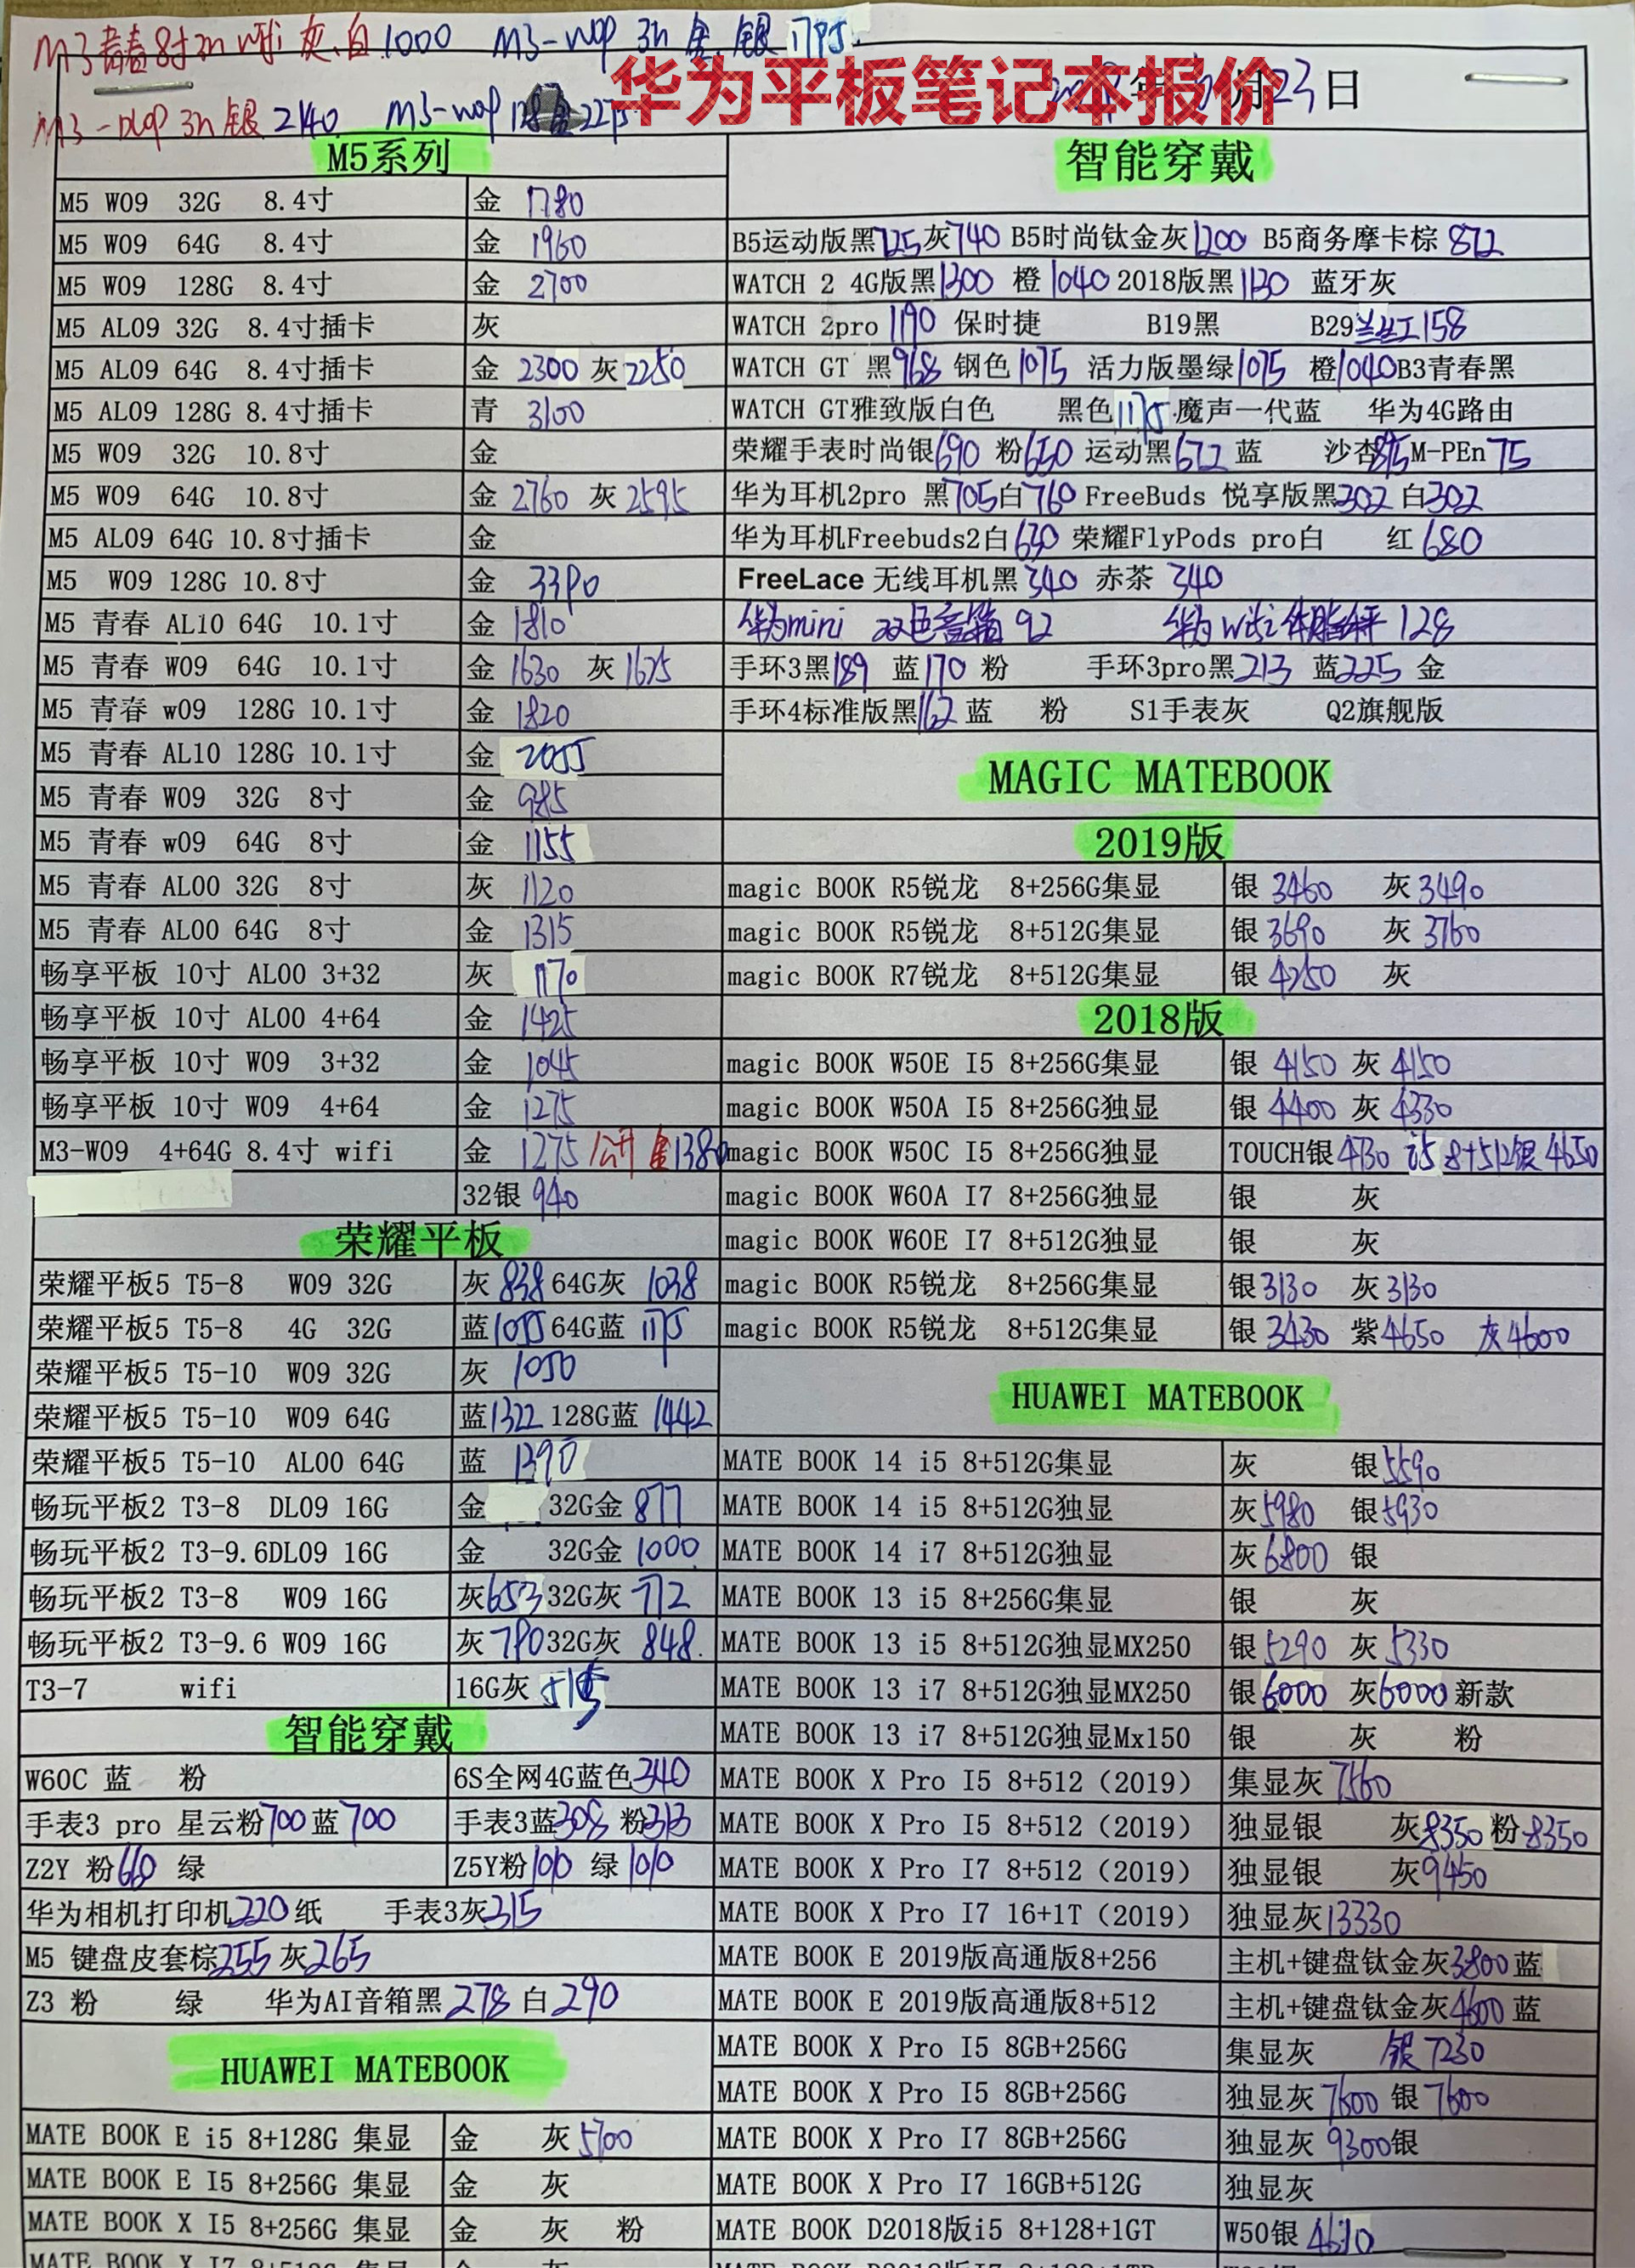 M3青春8寸3n wifi 灰.白 1000 M3-W09 3n 金.银 1795
华为平板笔记本报价
年 月23日
M3-DL09 3n银 2140 M3-W09 128金2275
M5系列
M5 W09 32G 8.4寸 金 1780
M5 W09 64G 8.4寸 金 1960
M5 W09 128G 8.4寸 金 2700
M5 AL09 32G 8.4寸插卡 灰
M5 AL09 64G 8.4寸插卡 金 2300 灰 2250
M5 AL09 128G 8.4寸插卡 青 3100
M5 W09 32G 10.8寸 金
M5 W09 64G 10.8寸 金 2760 灰 2595
M5 AL09 64G 10.8寸插卡 金
M5 W09 128G 10.8寸 金 3390
M5 青春 AL10 64G 10.1寸 金 1810
M5 青春 W09 64G 10.1寸 金 1630 灰 1675
M5 青春 w09 128G 10.1寸 金 1820
M5 青春 AL10 128G 10.1寸 金 2055
M5 青春 W09 32G 8寸 金 985
M5 青春 w09 64G 8寸 金 1155
M5 青春 AL00 32G 8寸 灰 1120
M5 青春 AL00 64G 8寸 金 1315
畅享平板 10寸 AL00 3+32 灰 1170
畅享平板 10寸 AL00 4+64 金 1425
畅享平板 10寸 W09 3+32 金 1045
畅享平板 10寸 W09 4+64 金 1275
M3-W09 4+64G 8.4寸 wifi 金 1275 公开 金1380
32银 940
荣耀平板
荣耀平板5 T5-8 W09 32G 灰 838 64G灰 1038
荣耀平板5 T5-8 4G 32G 蓝1055 64G蓝 1175
荣耀平板5 T5-10 W09 32G 灰 1050
荣耀平板5 T5-10 W09 64G 蓝1322 128G蓝 1442
荣耀平板5 T5-10 AL00 64G 蓝 1390
畅玩平板2 T3-8 DL09 16G 金 32G金 877
畅玩平板2 T3-9.6DL09 16G 金 32G金 1000
畅玩平板2 T3-8 W09 16G 灰653 32G灰 772
畅玩平板2 T3-9.6 W09 16G 灰 790 32G灰 848.
T3-7 wifi 16G灰 515
智能穿戴
W60C 蓝 粉 6S全网4G蓝色340
手表3 pro 星云粉700 蓝700 手表3蓝308 粉313
Z2Y 粉660 绿 Z5Y粉1010 绿 1010
华为相机打印机220 纸 手表3灰315
M5 键盘皮套棕255 灰265
Z3 粉 绿 华为AI音箱黑 278 白 290
HUAWEI MATEBOOK
MATE BOOK E i5 8+128G 集显 金 灰 5700
MATE BOOK E I5 8+256G 集显 金 灰
MATE BOOK X I5 8+256G 集显 金 灰 粉
智能穿戴
B5运动版黑725 灰740 B5时尚钛金灰1200 B5商务摩卡棕 872
WATCH 2 4G版黑1300 橙 1040 2018版黑 1130 蓝牙灰
WATCH 2pro 1190 保时捷 B19黑 B29 158
WATCH GT 黑968 钢色1075 活力版墨绿1075 橙1040 B3青春黑
WATCH GT雅致版白色 黑色1175 魔声一代蓝 华为4G路由
荣耀手表时尚银690 粉650 运动黑672 蓝 沙杏875 M-PEn 75
华为耳机2pro 黑705 白760 FreeBuds 悦享版黑302 白302
华为耳机Freebuds2白630 荣耀FlyPods pro白 红680
FreeLace 无线耳机黑 340 赤茶 340
华为mini 双色音箱 92 华为 wifi 体脂秤 128
手环3黑189 蓝170 粉 手环3pro黑213 蓝225 金
手环4标准版黑162 蓝 粉 S1手表灰 Q2旗舰版
MAGIC MATEBOOK
2019版
magic BOOK R5锐龙 8+256G集显 银 3460 灰 3490
magic BOOK R5锐龙 8+512G集显 银 3690 灰 3760
magic BOOK R7锐龙 8+512G集显 银 4250 灰
2018版
magic BOOK W50E I5 8+256G集显 银 4150 灰 4150
magic BOOK W50A I5 8+256G独显 银 4400 灰 4330
magic BOOK W50C I5 8+256G独显 TOUCH银 4730 i5 8+512银 4650
magic BOOK W60A I7 8+256G独显 银 灰
magic BOOK W60E I7 8+512G独显 银 灰
magic BOOK R5锐龙 8+256G集显 银3130 灰3130
magic BOOK R5锐龙 8+512G集显 银 3430 紫4650 灰4600
HUAWEI MATEBOOK
MATE BOOK 14 i5 8+512G集显 灰 银5590
MATE BOOK 14 i5 8+512G独显 灰5980 银5930
MATE BOOK 14 i7 8+512G独显 灰6800 银
MATE BOOK 13 i5 8+256G集显 银 灰
MATE BOOK 13 i5 8+512G独显MX250 银5290 灰5330
MATE BOOK 13 i7 8+512G独显MX250 银6000 灰6000 新款
MATE BOOK 13 i7 8+512G独显Mx150 银 灰 粉
MATE BOOK X Pro I5 8+512（2019） 集显灰 7560
MATE BOOK X Pro I5 8+512（2019） 独显银 灰8350 粉8350
MATE BOOK X Pro I7 8+512（2019） 独显银 灰9450
MATE BOOK X Pro I7 16+1T（2019） 独显灰13330
MATE BOOK E 2019版高通版8+256 主机+键盘钛金灰3800 蓝
MATE BOOK E 2019版高通版8+512 主机+键盘钛金灰4600 蓝
MATE BOOK X Pro I5 8GB+256G 集显灰 银7230
MATE BOOK X Pro I5 8GB+256G 独显灰 7600 银 7600
MATE BOOK X Pro I7 8GB+256G 独显灰 9300 银
MATE BOOK X Pro I7 16GB+512G 独显灰
MATE BOOK D2018版i5 8+128+1GT W50银 4670